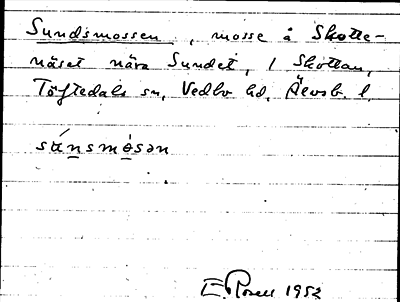 Sundsmossen, mosse å Skotte-
näset nära Sundet, i Skottan,
Töftedals sn, Vedbo hd, Älvsb. l.
sánsmòsən
E. Rosell 1952